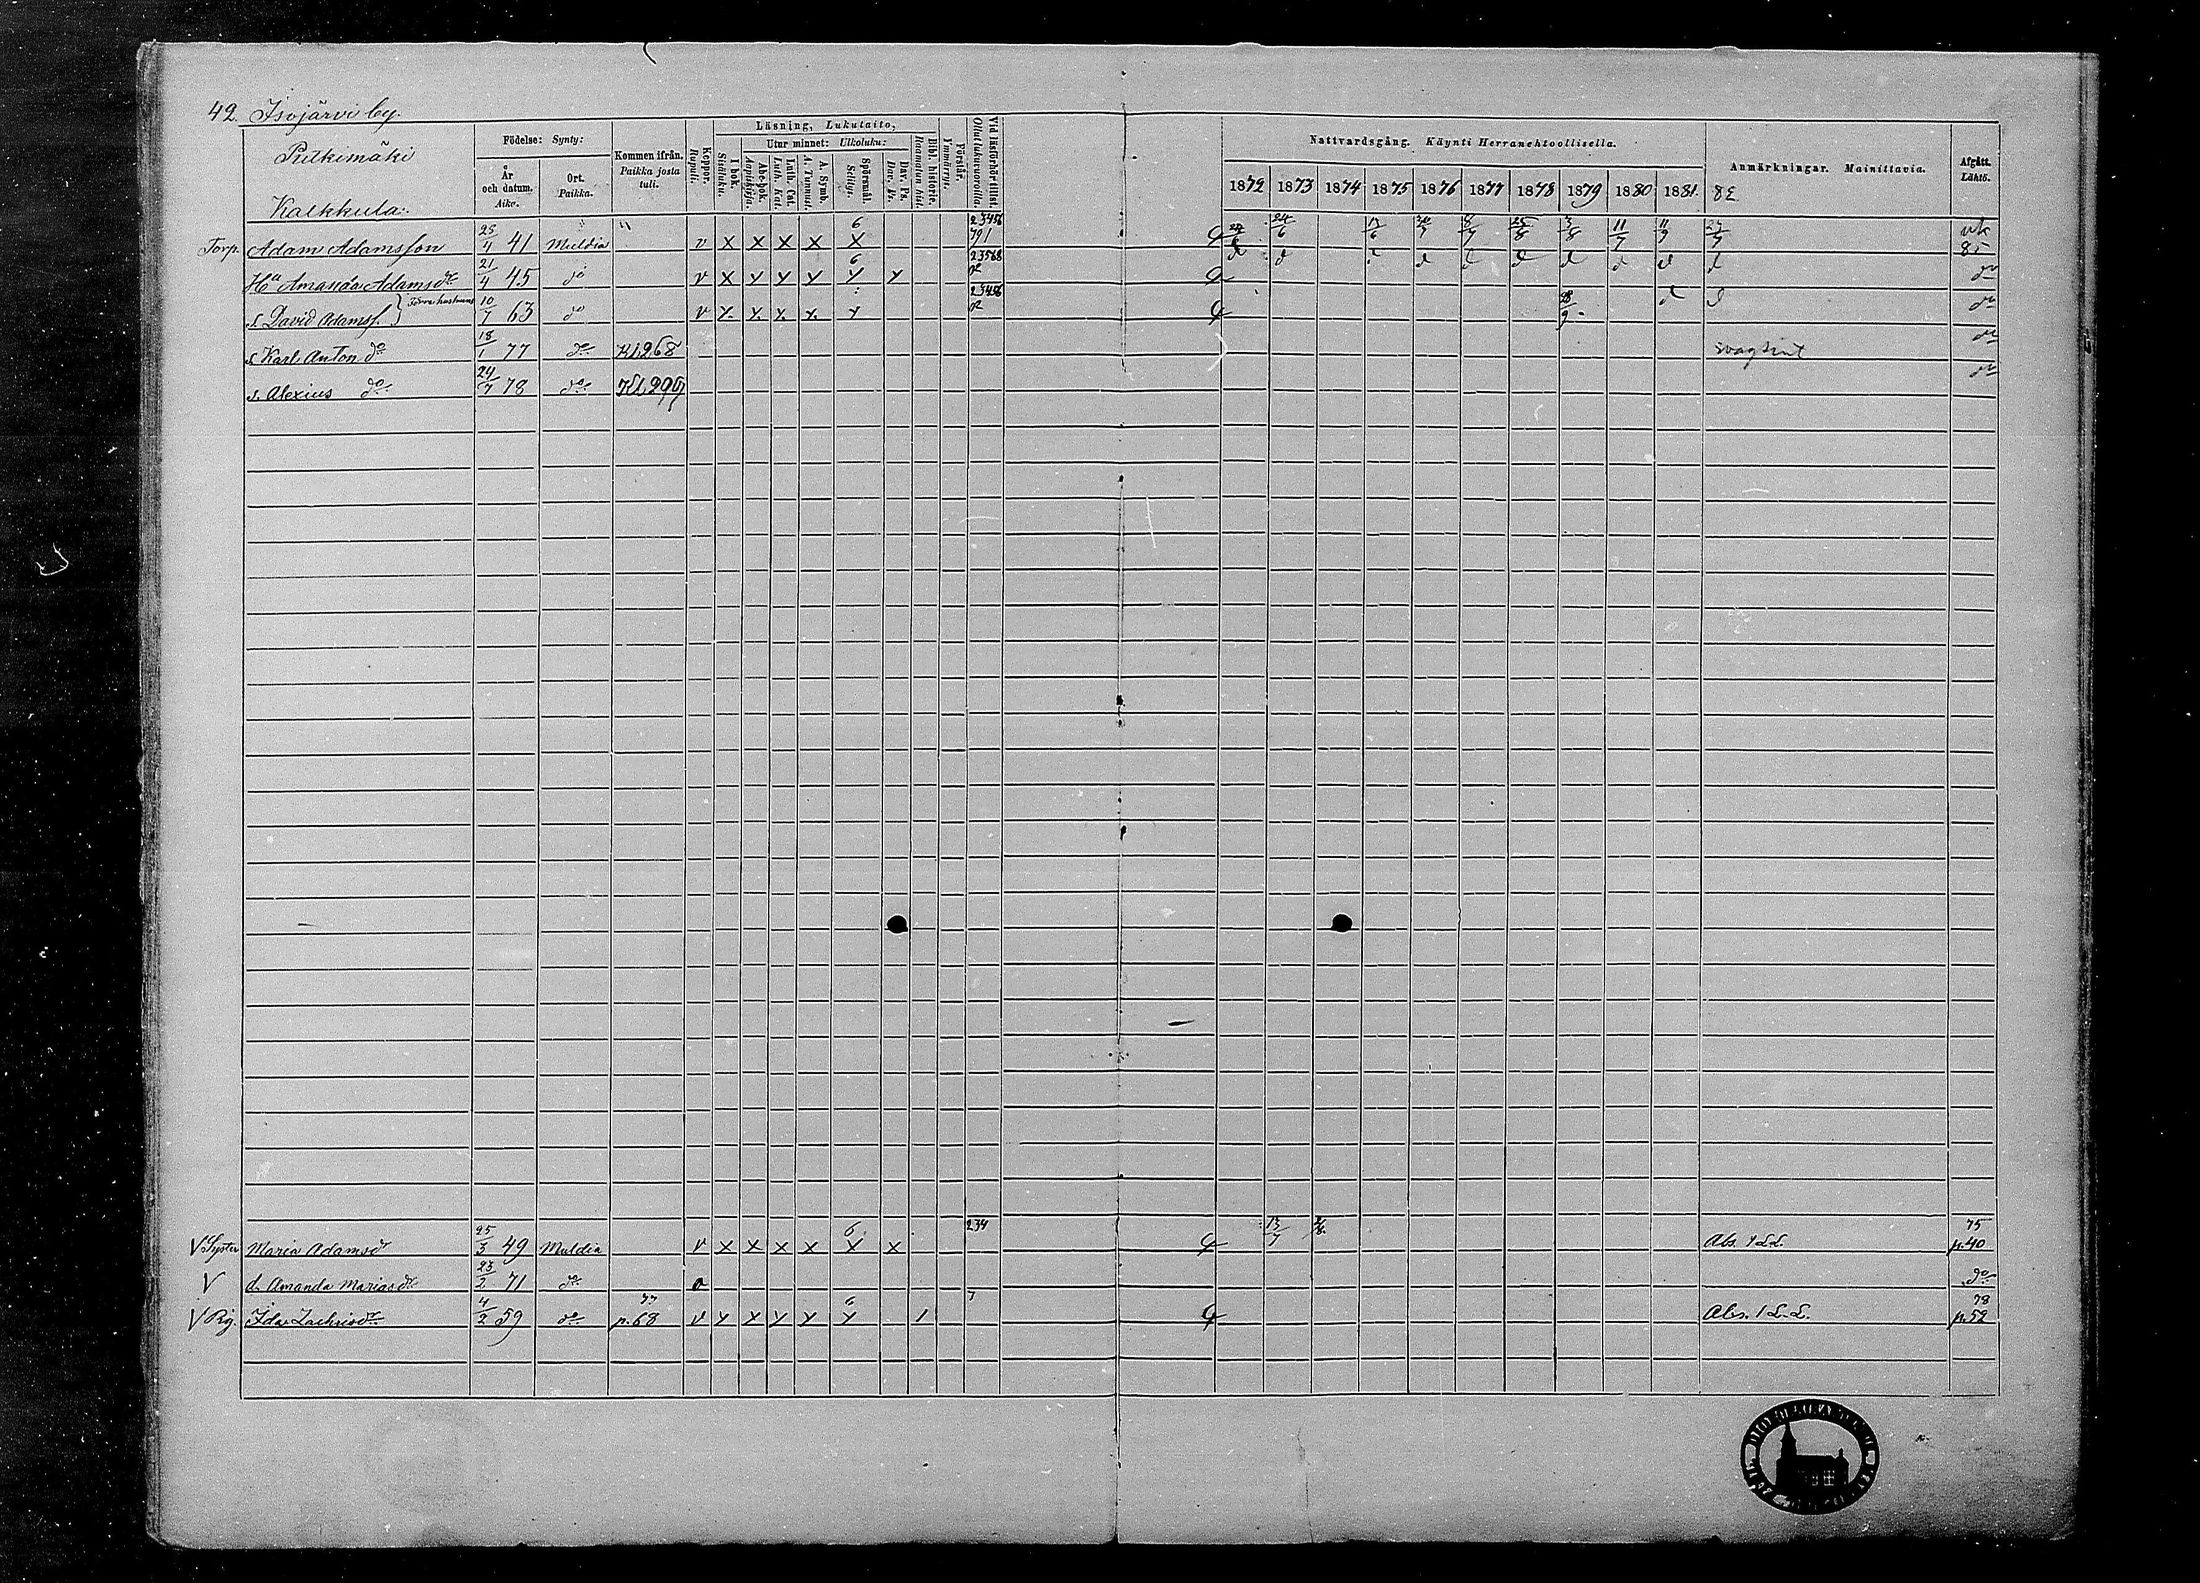 42. Isojärvi by.
Putkimäki
Kalkkula.
Födelse: Synty:
År och datum. Aika.
Ort. Paikka.
Kommen ifrån. Paikka josta tuli.
Koppor. Rupuli.
Läsning, Lukutaito,
I bok. Sisäluku.
Utur minnet: Ulkoluku:
Abc-bok. Aapiskirja.
Luth. Cat. Luth. Kat.
A. Symb. A. Tunnust.
Spörsmål. Selitys.
Dav. Ps. Dav. Ps.
Bibl. historie. Raamatun hist.
Förstår. Ymmärrys.
Vid läsförhör tillst. Ollut lukuvuorolla.
Nattvardsgång. Käynti Herranehtoollisella.
1872 1873 1874 1875 1876 1877 1878 1879 1880 1881.
Anmärkningar. Mainittavia.
82
Afgått. Lähtö.
Torp. Adam Adamsson 25/4 41 Muldia v x x x x 6 x 23456 791 24/6 8/7 25/8 3/8 11/7 85
Hu Amanda Adamsdr 21/4 45 do v x y y y 6 y y do
s. David Adamss. 10/7 63 do v x. x. x. x. y 23456 28/9 do
s. Karl Anton do 18/1 77 do Kl. 268 svagsint do
s. Alexius do 24/7 78 do Kl. 299 do
V Syster Maria Adamsdr 25/3 49 Muldia v x x x x 6 x x 234 13/7 Abs. 1 L.L. 75 p. 40
V d. Amanda Mariasdr 23/2 71 do do
V Pig. Ida Zachrisdr 4/2 59 do 77 p. 68 v y x y y 6 y 1 7 Abs. 1 L.L. 78 p. 52